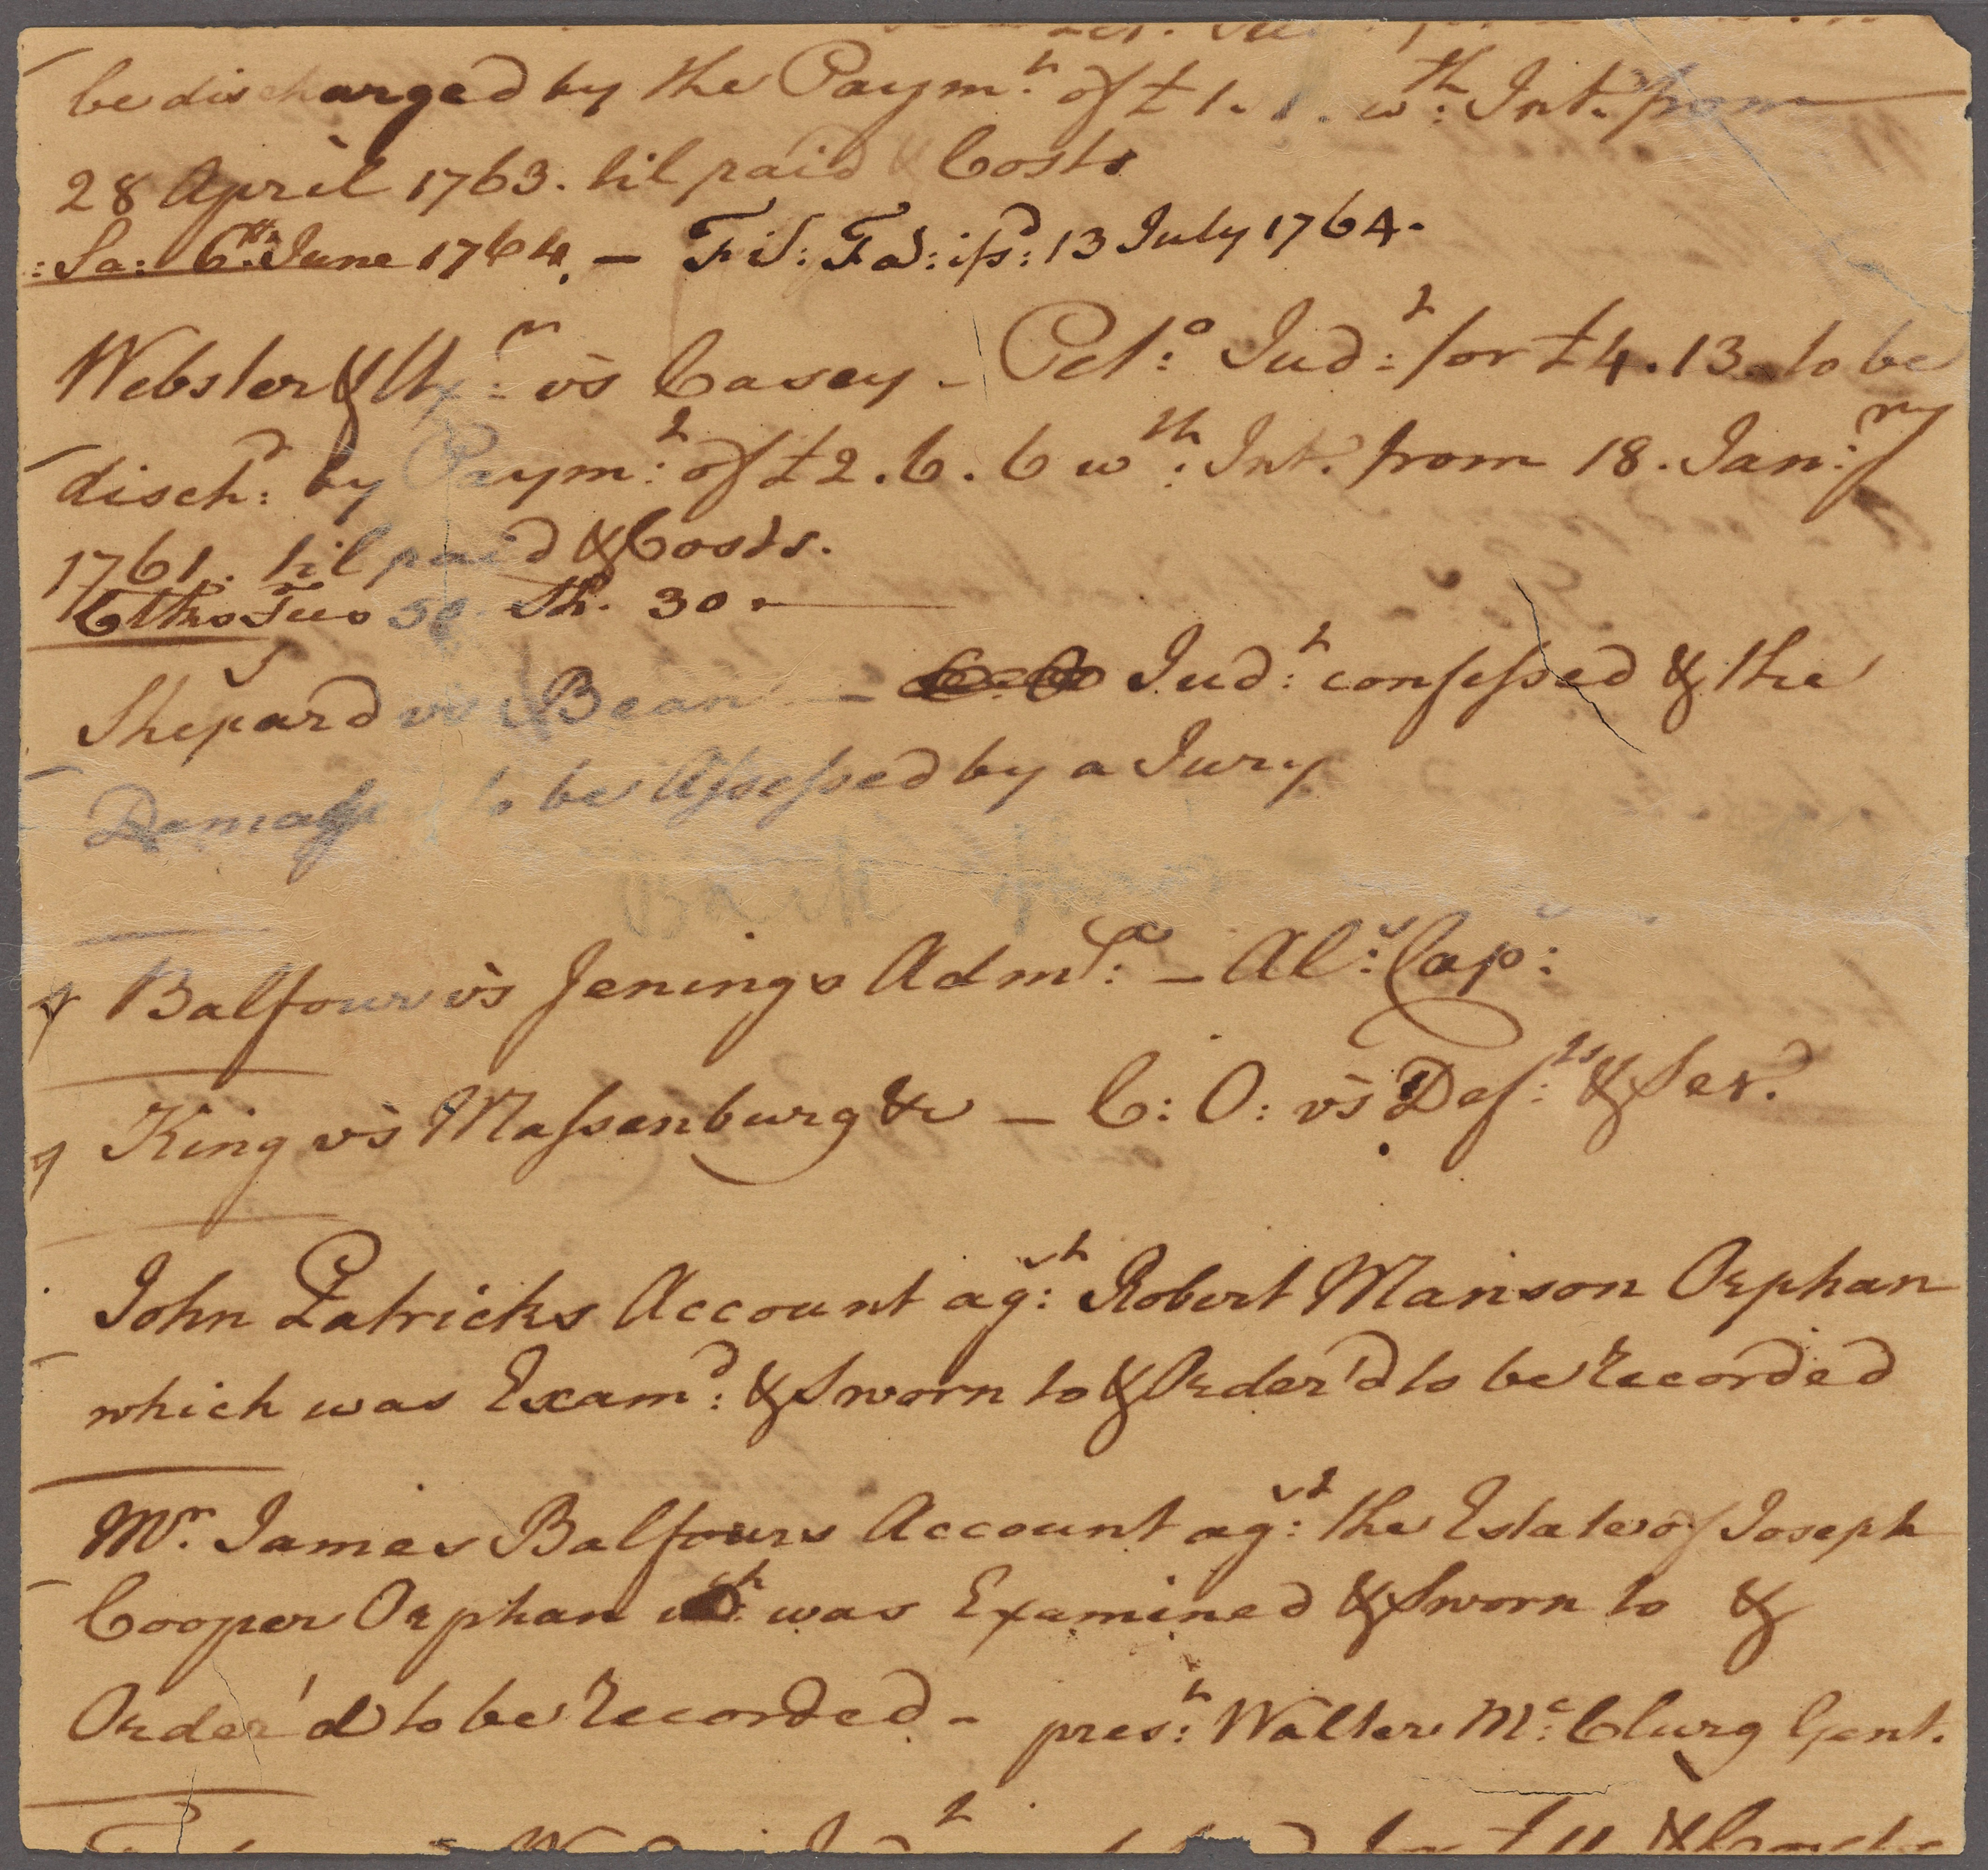 be discharged by the Paym:t of £1. 1. w:th Int. from
28 April 1763. til paid & Costs
:Sa: 6:th June 1764. — Fi: Fa: iss:d 13 July 1764.
Webster & Ux:r vs Casey - Pet:o Jud:t for £4.13. to be
disch:d by Paym:t of £2.6.6 w:th Int. from 18. Jan:ry
1761. til paid & Costs.
Clks Fees 50 Sh. 30.
Shepard vs Bean — Jud:t confessed & the
Damages to be Assessed by a Jury
Balfour vs Jenings Adm:x — Al:s Cap:
King vs Massenburg &c — C: O: vs Def:ts & Ser.
John Patricks Account ag:st Robert Manson Orphan
which was Exam:d & Sworn to & Order'd to be Recorded
Mr. James Balfours Account ag:st the Estate of Joseph
Cooper Orphan was Examined & Sworn to &
Order'd to be Recorded - pres:t Walter Mc:Clurg Gent.